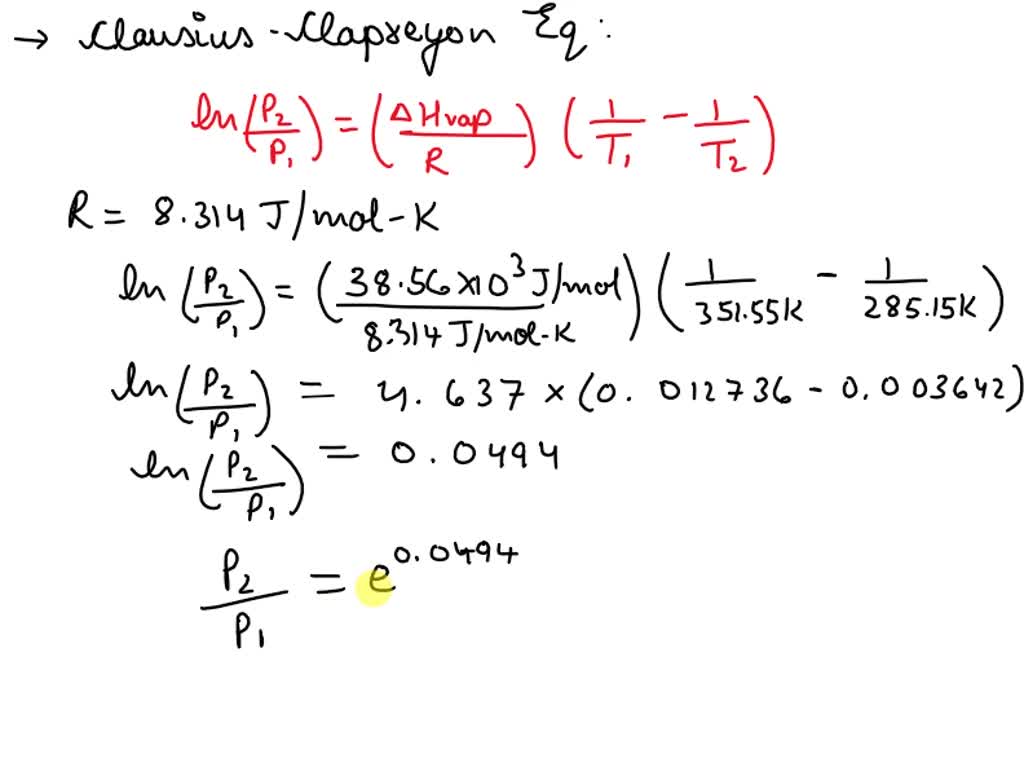 → Clausius-Clapreyon Eq:
ln(P₂/P₁) = (ΔHvap/R) (1/T₁ − 1/T₂)
R = 8.314 J/mol-K
ln(P₂/P₁) = (38.56×10³ J/mol / 8.314 J/mol-K) (1/351.55K − 1/285.15K)
ln(P₂/P₁) = 4.637 × (0.012736 − 0.003642)
ln(P₂/P₁) = 0.0494
P₂/P₁ = e^0.0494